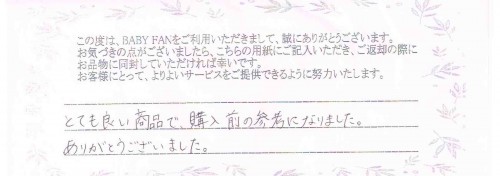 この度は、BABY FANをご利用いただきまして、誠にありがとうございます。
お気づきの点がございましたら、こちらの用紙にご記入いただき、ご返却の際に
お品物に同封していただければ幸いです。
お客様にとって、よりよいサービスをご提供できるように努力いたします。
とても良い商品で、購入前の参考になりました。
ありがとうございました。